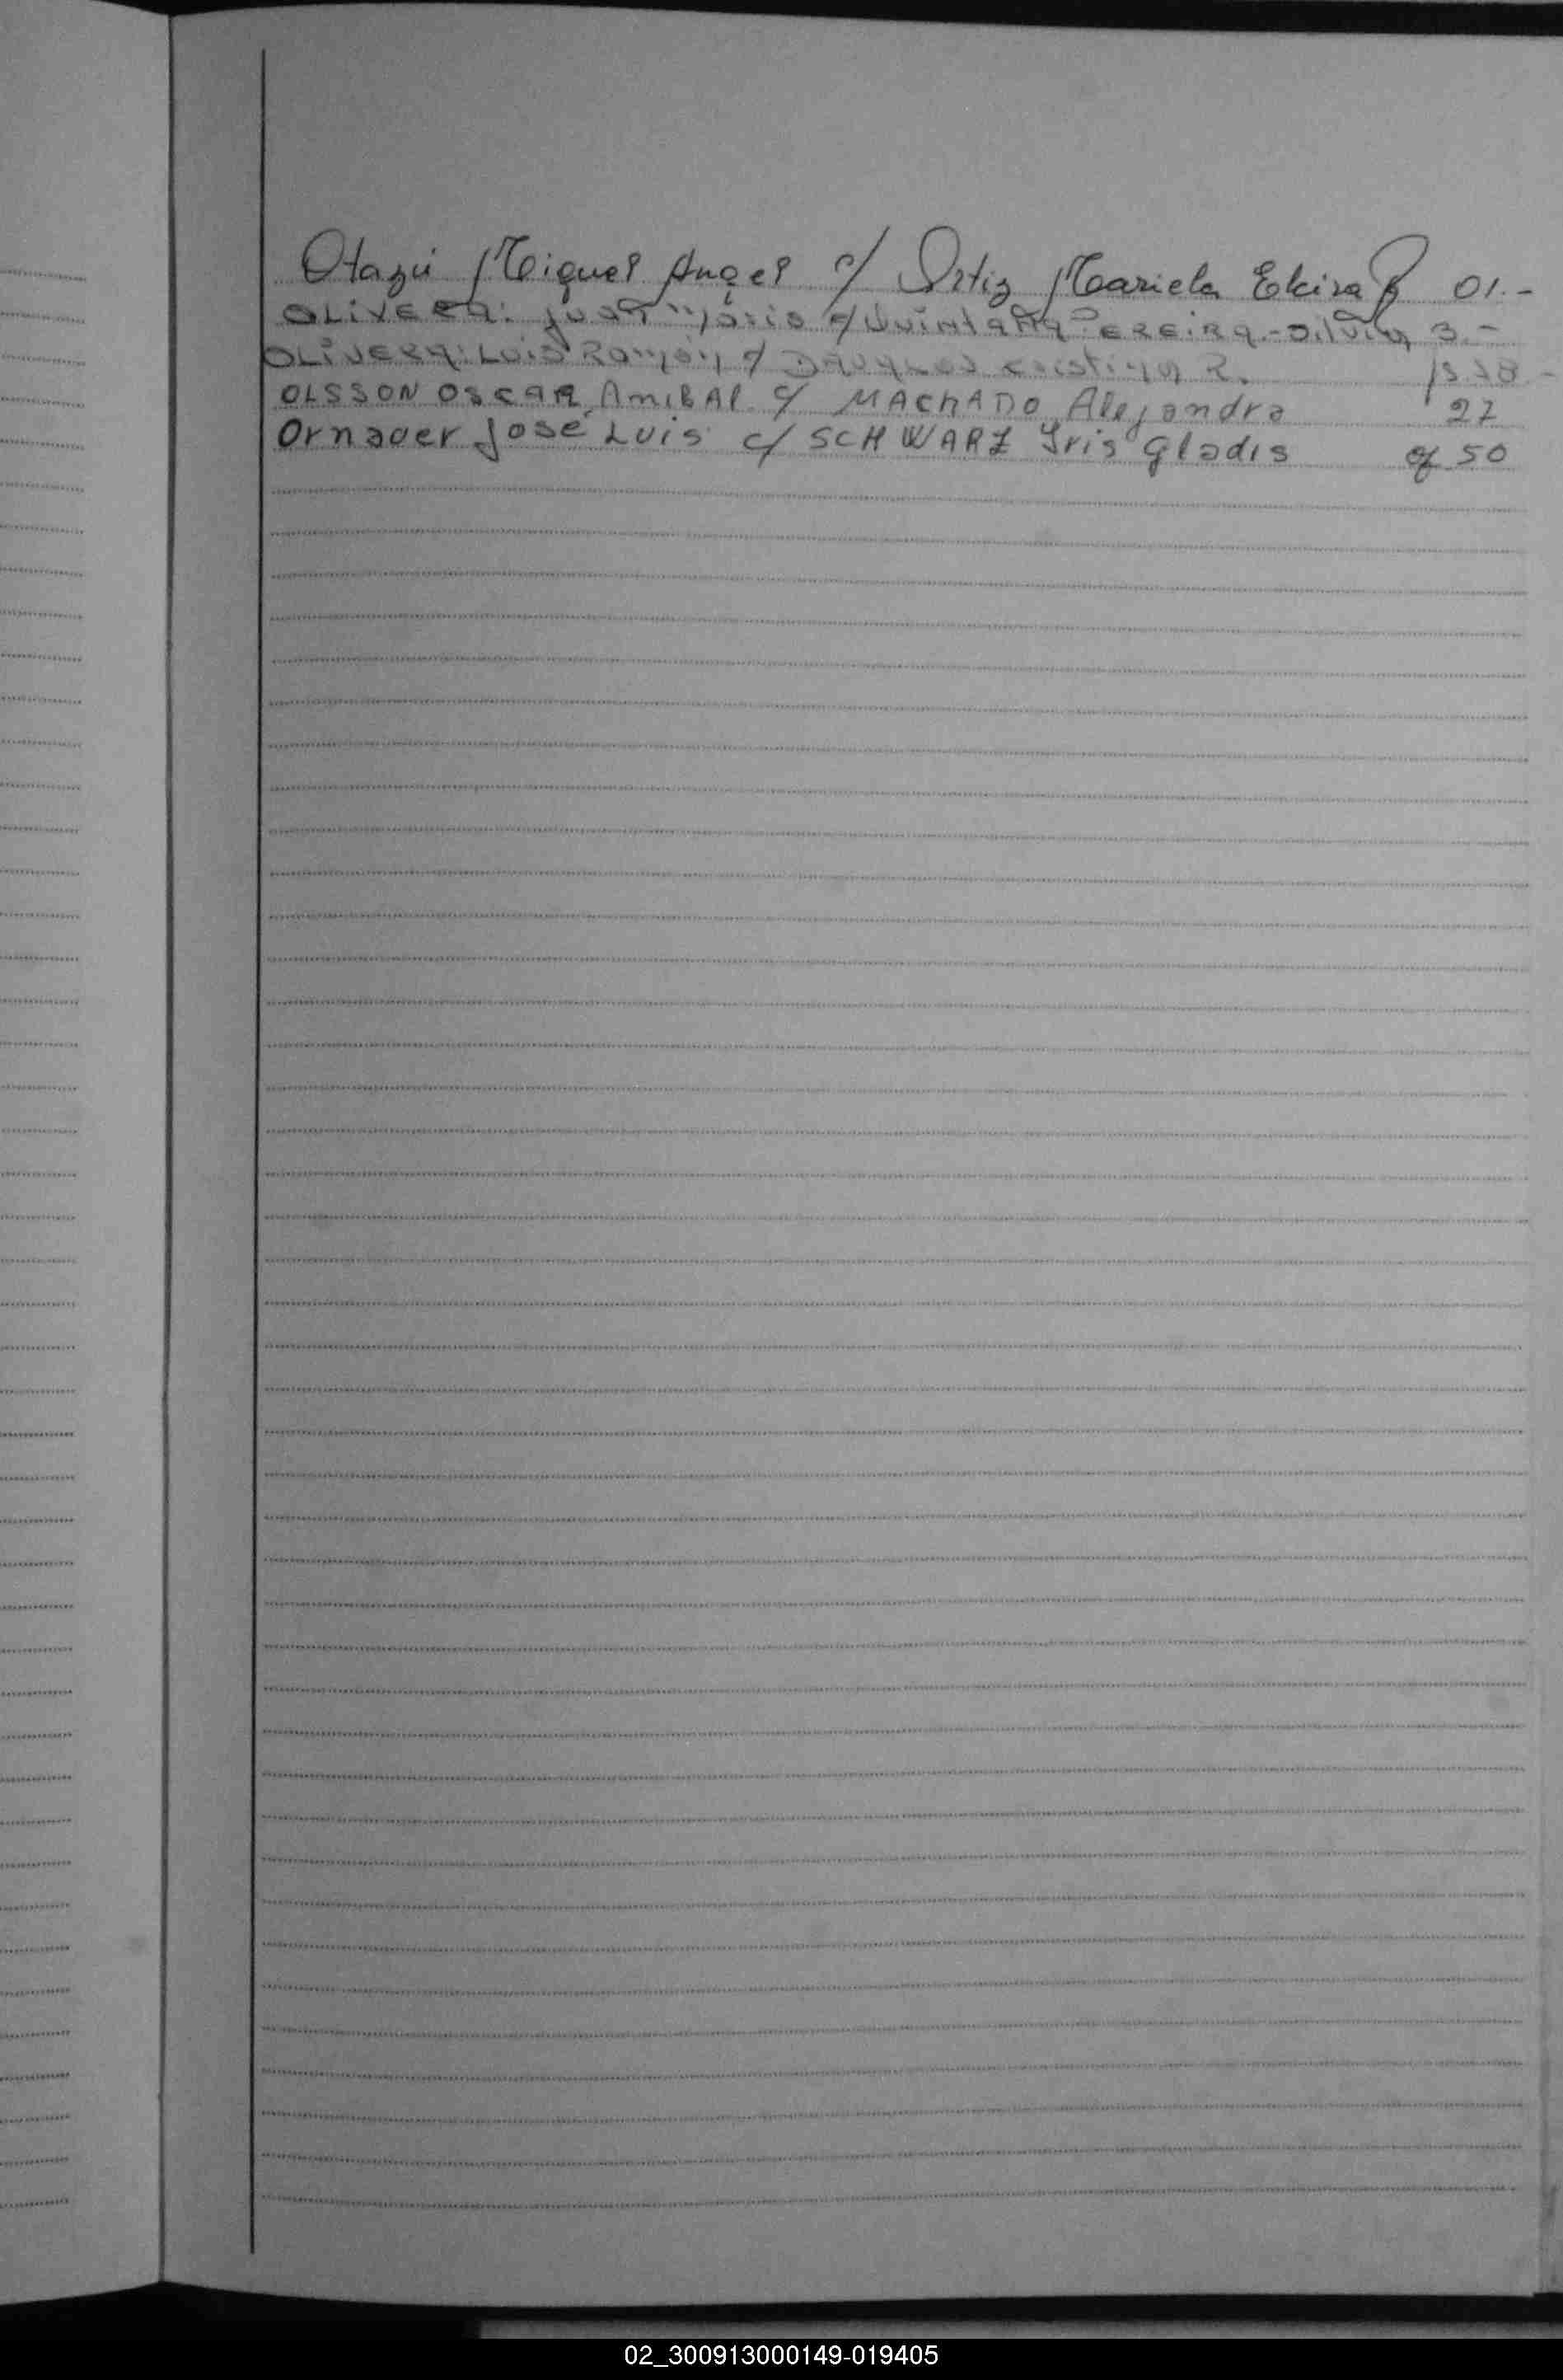 Otazú Miguel Angel c/ Ortiz Mariela Elvira B 01.-
OLIVERA: Juan Mario c/ Quintana Pereira - Silvia 3.-
OLIVERA: Luis Ramón c/ Cristina R. 18 -
OLSSON OSCAR AniBAl c/ MAChADO Alejandra 27
Ornaver José Luis c/ SCHWARZ Iris Gladis of 50
02_300913000149-019405